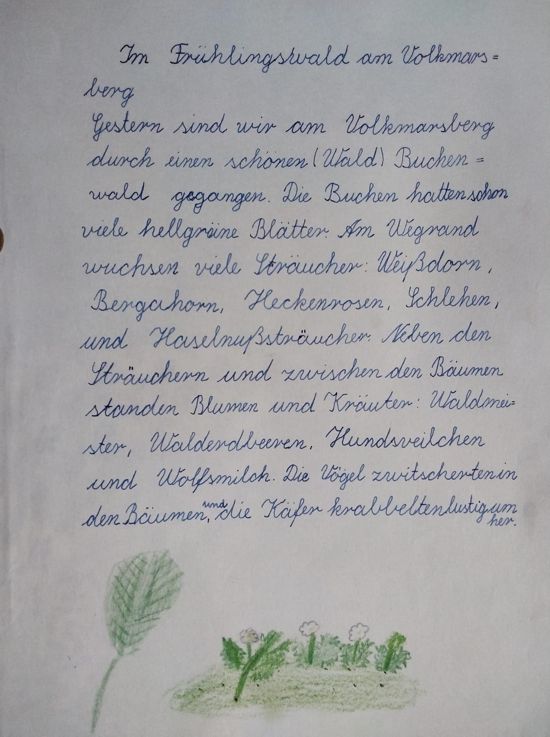 Im Frühlingswald am Volkmars=
berg
Gestern sind wir am Volkmarsberg
durch einen schönen (Wald) Buchen=
wald gegangen. Die Buchen hatten schon
viele hellgrüne Blätter. Am Wegrand
wuchsen viele Sträucher: Weißdorn,
Bergahorn, Heckenrosen, Schlehen,
und Haselnußsträucher. Neben den
Sträuchern und zwischen den Bäumen
standen Blumen und Kräuter: Waldmei=
ster, Walderdbeeren, Hundsveilchen
und Wolfsmilch. Die Vögel zwitscherten in
den Bäumen, und die Käfer krabbelten lustig um
her.